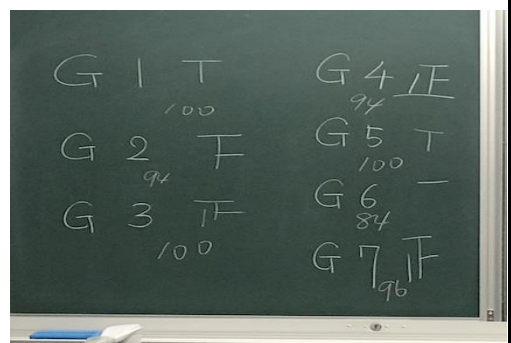 G 1 T
100
G 2 下
94
G 3 正
100
G 4 正
94
G 5 T
100
G 6 一
84
G 7 正
96